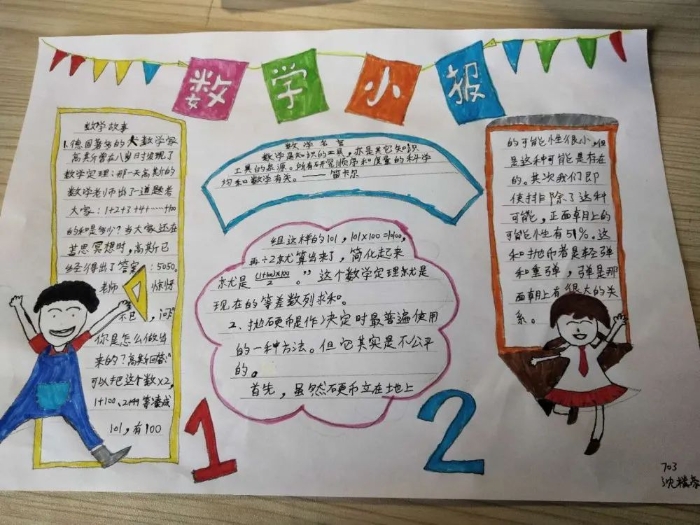 数学小报
数学故事
1.德国著名的大数学家
高斯曾在八岁时发现了
数学定理:那一天高斯的
数学老师布出了道题考
大家:1+2+3+4+……+100
的和是多少?当大家还在
苦思冥想时,高斯已
经得出了答案:5050。
老师 惊讶
不已,问:
你是怎么做出
来的?高斯回答:
可以把这个数×2,
1+100、2+99等凑成
101,有100
数学名言
数学是知识的工具,亦是其它知识
工具的泉源。所有研究顺序和度量的科学
均和数学有关。——笛卡尔
组这样的101,101×100=10100,
再÷2就算出来了,简化起来
就是(1+100)×100/2。”这个数学定理就是
现在的等差数列求和。
2、抛硬币是作决定时最普遍使用
的一种方法。但它其实是不公平
的。
首先,虽然硬币立在地上
的可能性很小,但
是这种可能是存在
的。其次我们即
使排除了这种
可能,正面朝上的
可能性有51%。这
和抛币者是轻弹
和重弹,弹是那
面朝上有很大的关
系。
1
2
703